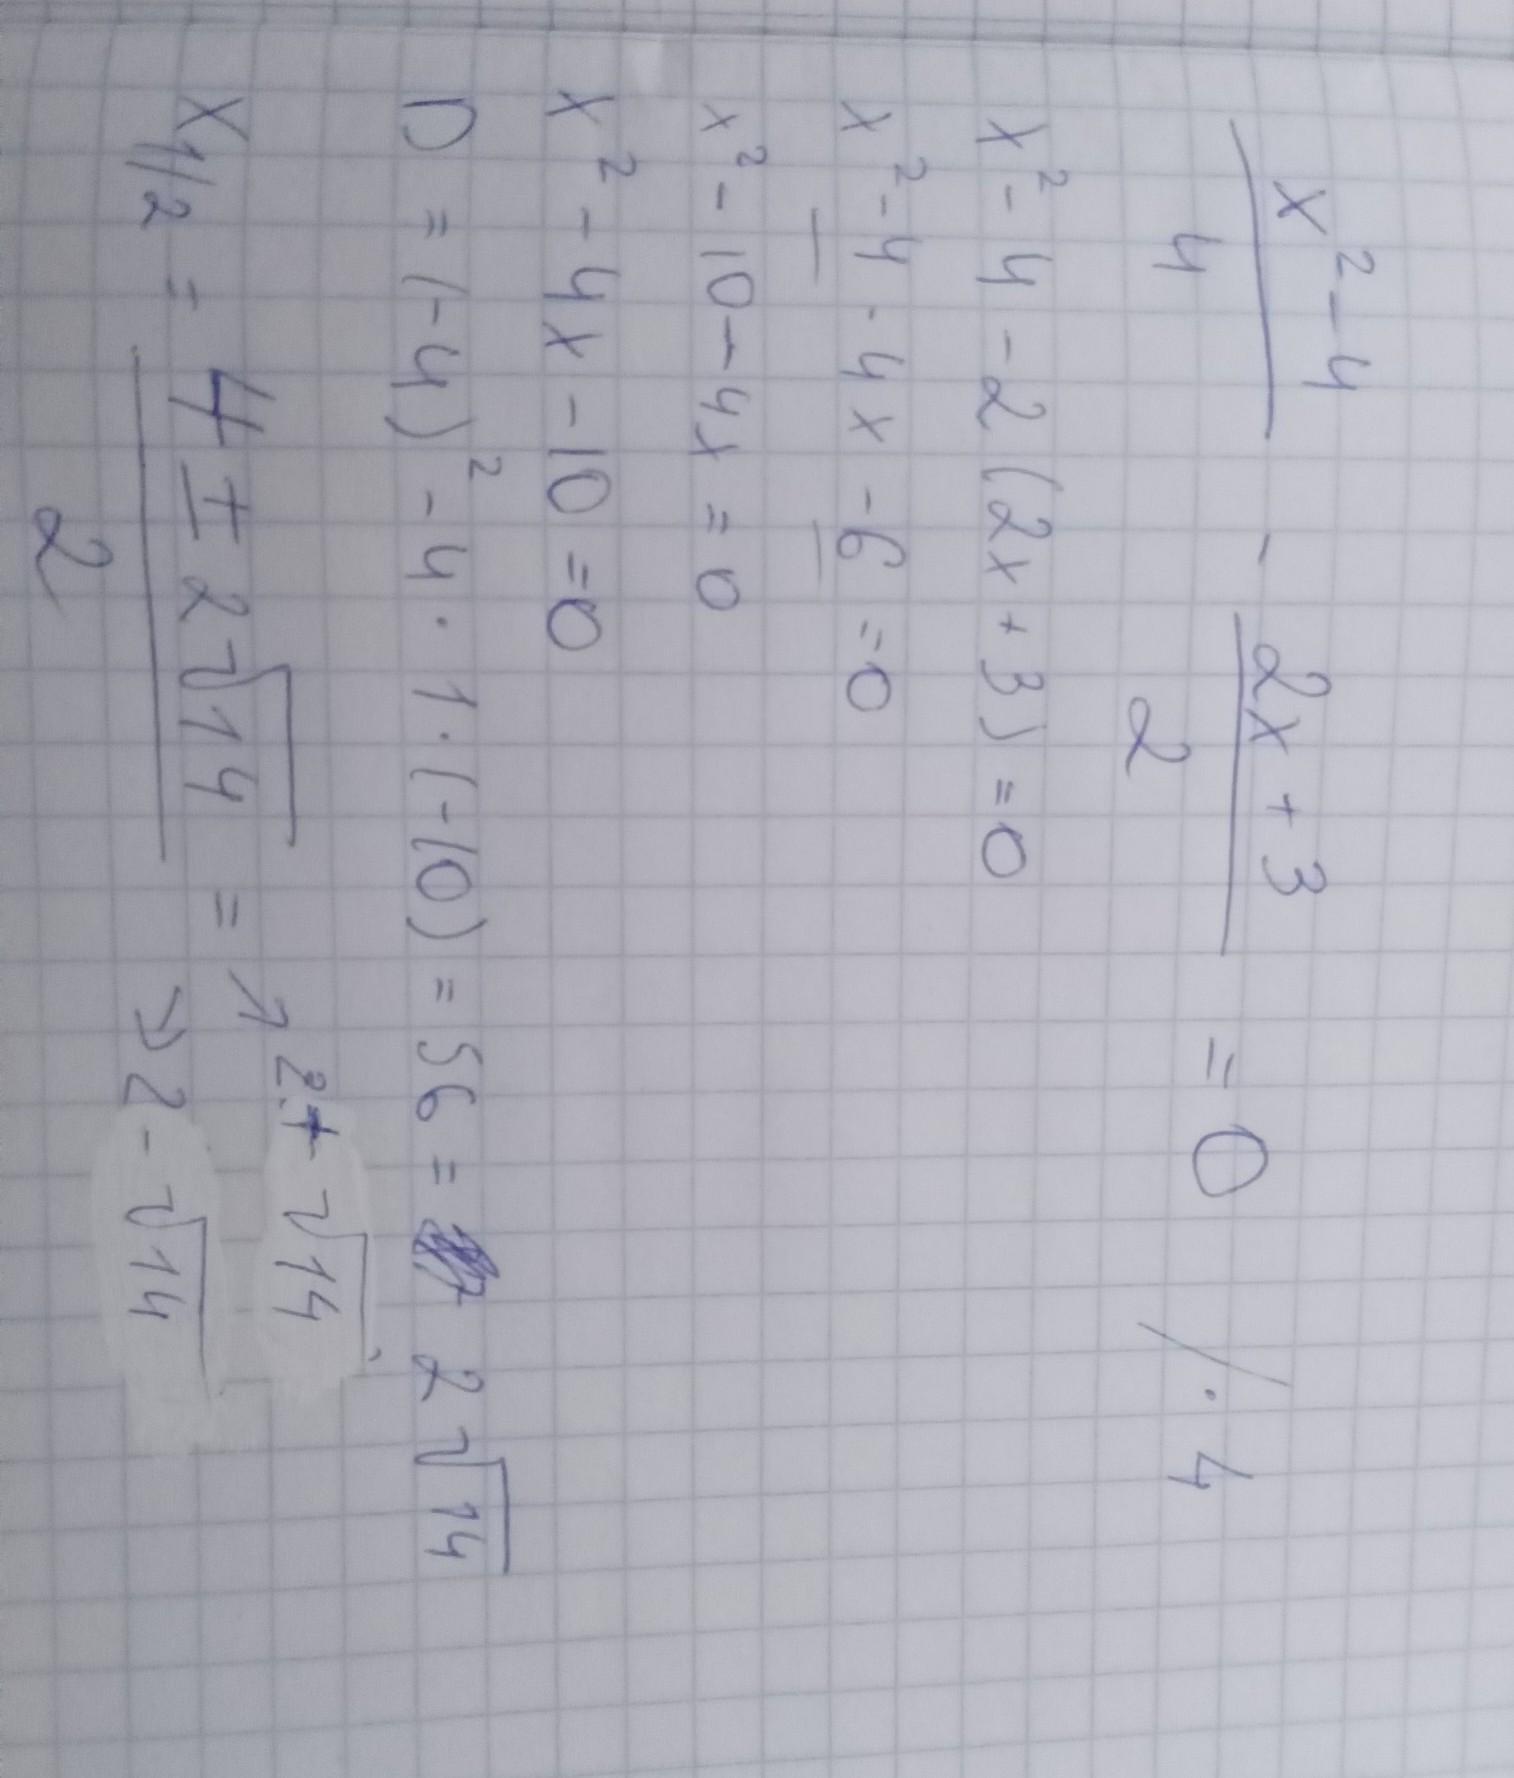 x² - 4 / 4 - 2x + 3 / 2 = 0 /· 4
x² - 4 - 2(2x + 3) = 0
x² - 4 - 4x - 6 = 0
x² - 10 - 4x = 0
x² - 4x - 10 = 0
D = (-4)² - 4 · 1 · (-10) = 56 = 2√14
x1/2 = 4 ± 2√14 / 2 = ↗ 2 + √14
↘ 2 - √14